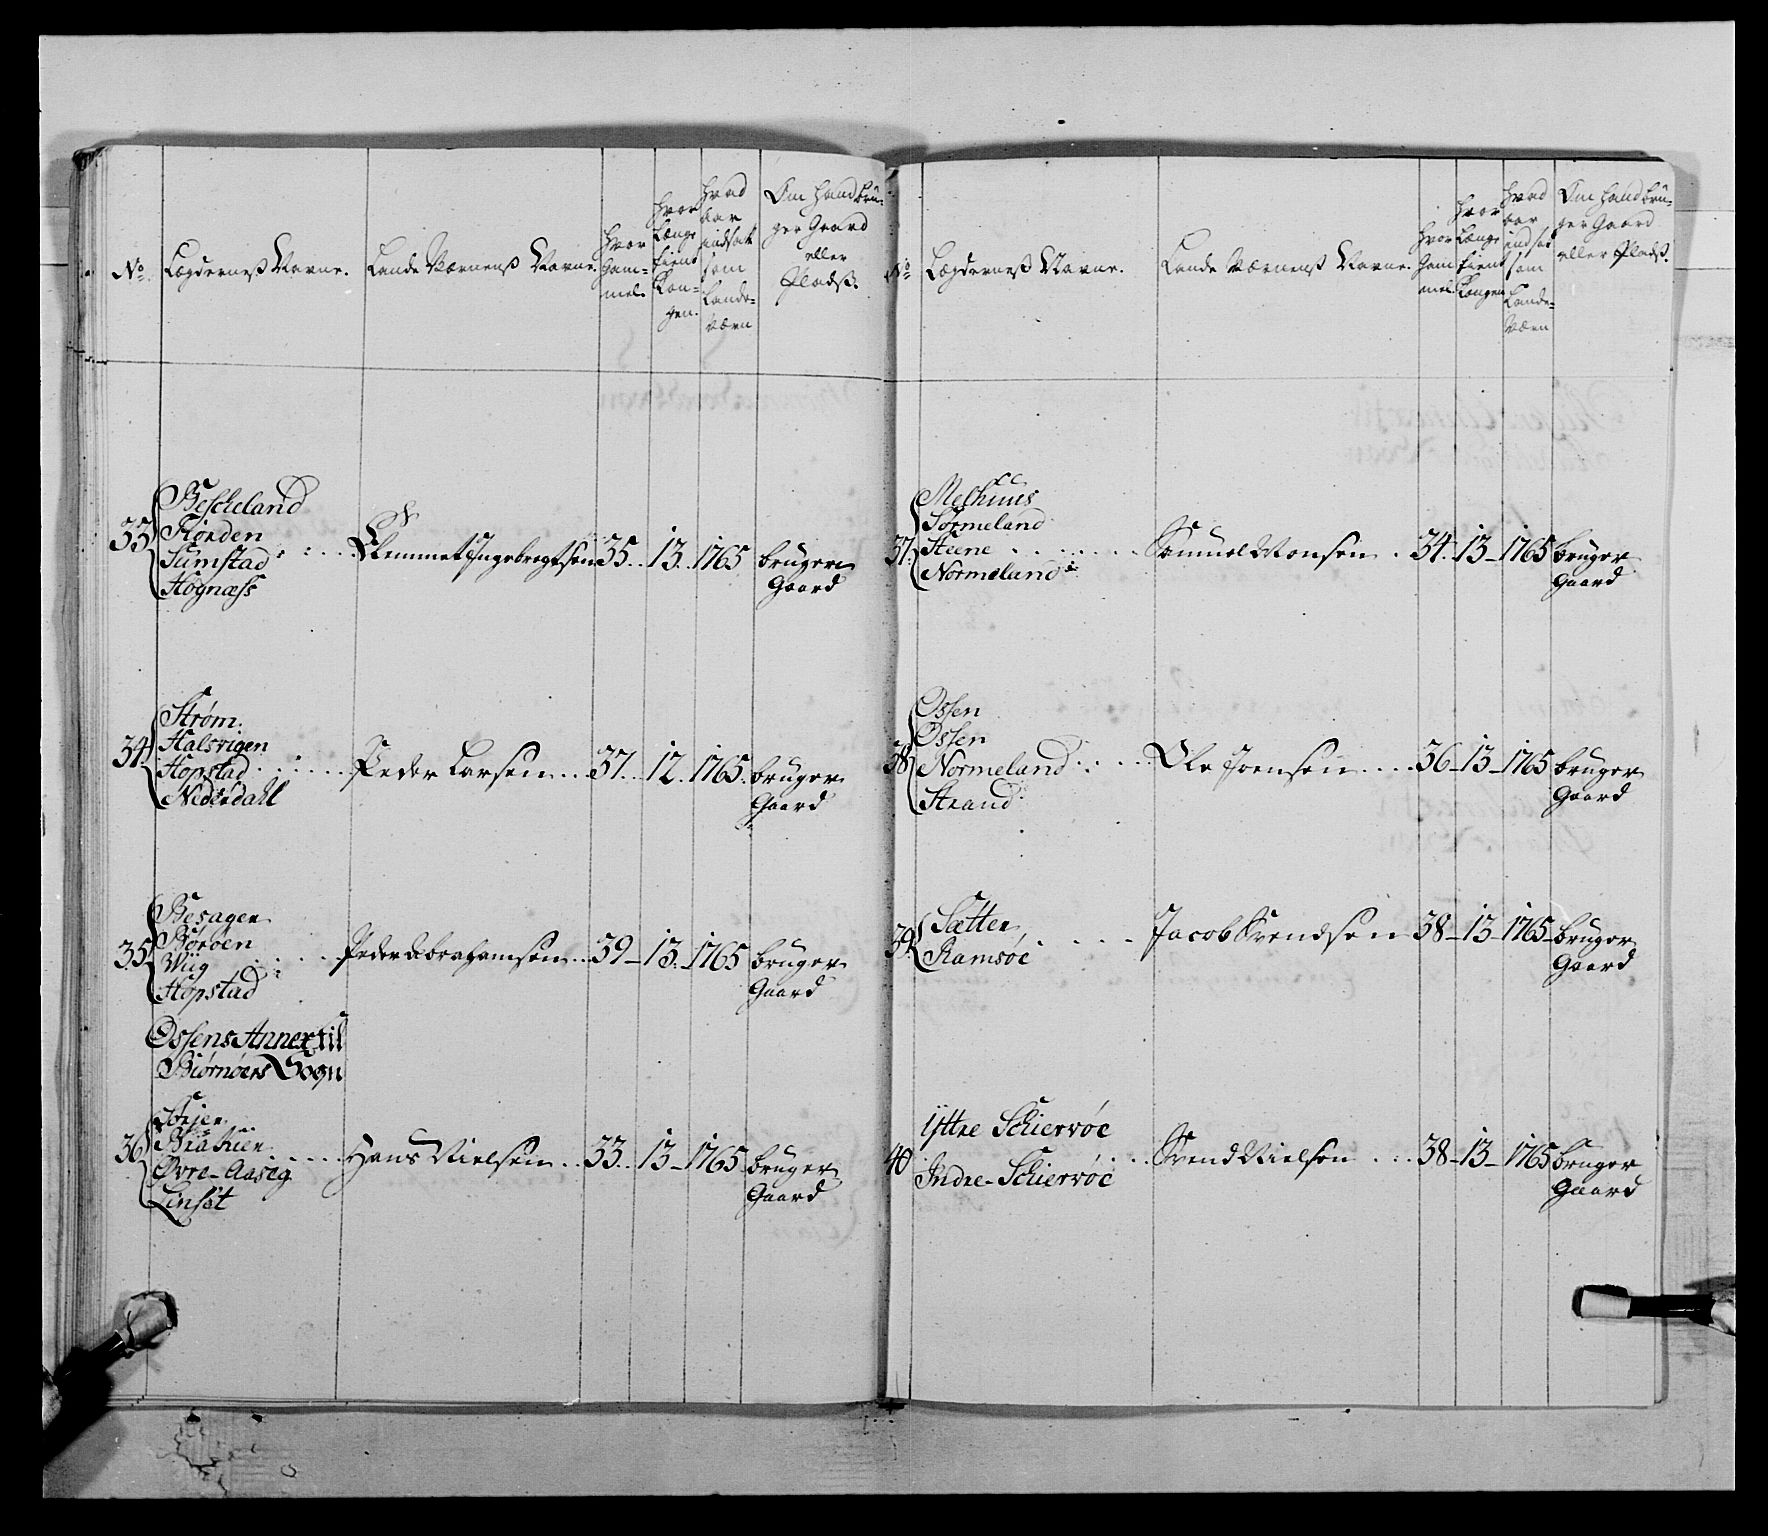 No.
Lægdernes Navne.
Lande Værnens Navne.
Hvor
Gam-
mel.
Hvor
Længe
tient
Kon-
gen.
Hvad
Aar
indsat
som
Lande-
Værn
Om Hand bru-
ger Gaard
eller
Pladss.
35
Bescheland
Fiørden
Sumstad
Hognæss
Clemmet Ingebregtsen 35. 13. 1765 bruger
Gaard
34
Strøm.
Halsvigen
Hopstad
Nederdahl
Peder Larsen 37. 12. 1765. bruger
Gaard
35
Besagen
Børøen
Wiig
Hopstad
Peder Abrahamsen 39 - 13. - 1765 bruger
Gaard
Ossens Annex til
Biørnøers Sogn
36
Aasegg
Øvre-Aaseg
Linsøt
Hans Nielsen 33. 13 - 1765 bruger
Gaard
No
Lægdernes Navne.
Lande Værnens Navne.
Hvor
Gam
mel.
Hvor
Længe
tient
Kongen
Hvad
Aar
indsat
som
Lande-
Værn
Om Hand bru-
ger Gaard
eller Pladss.
37
Melhuus
Sørmeland
Steene
Normeland
Samuel Monsen 34. 13 - 1765 bruger
Gaard
38
Ossen
Ossen
Normeland
Strand
Ole Joensen 36 - 13 - 1765 bruger
Gaard
39
Sætter
Ramsøe
Jacob Svendsen 38 - 13 - 1765 bruger
Gaard
40
Yttre Schiervöe
Indre-Schiervöe
Svend Nielsen 38 - 13 - 1765 bruger
Gaard